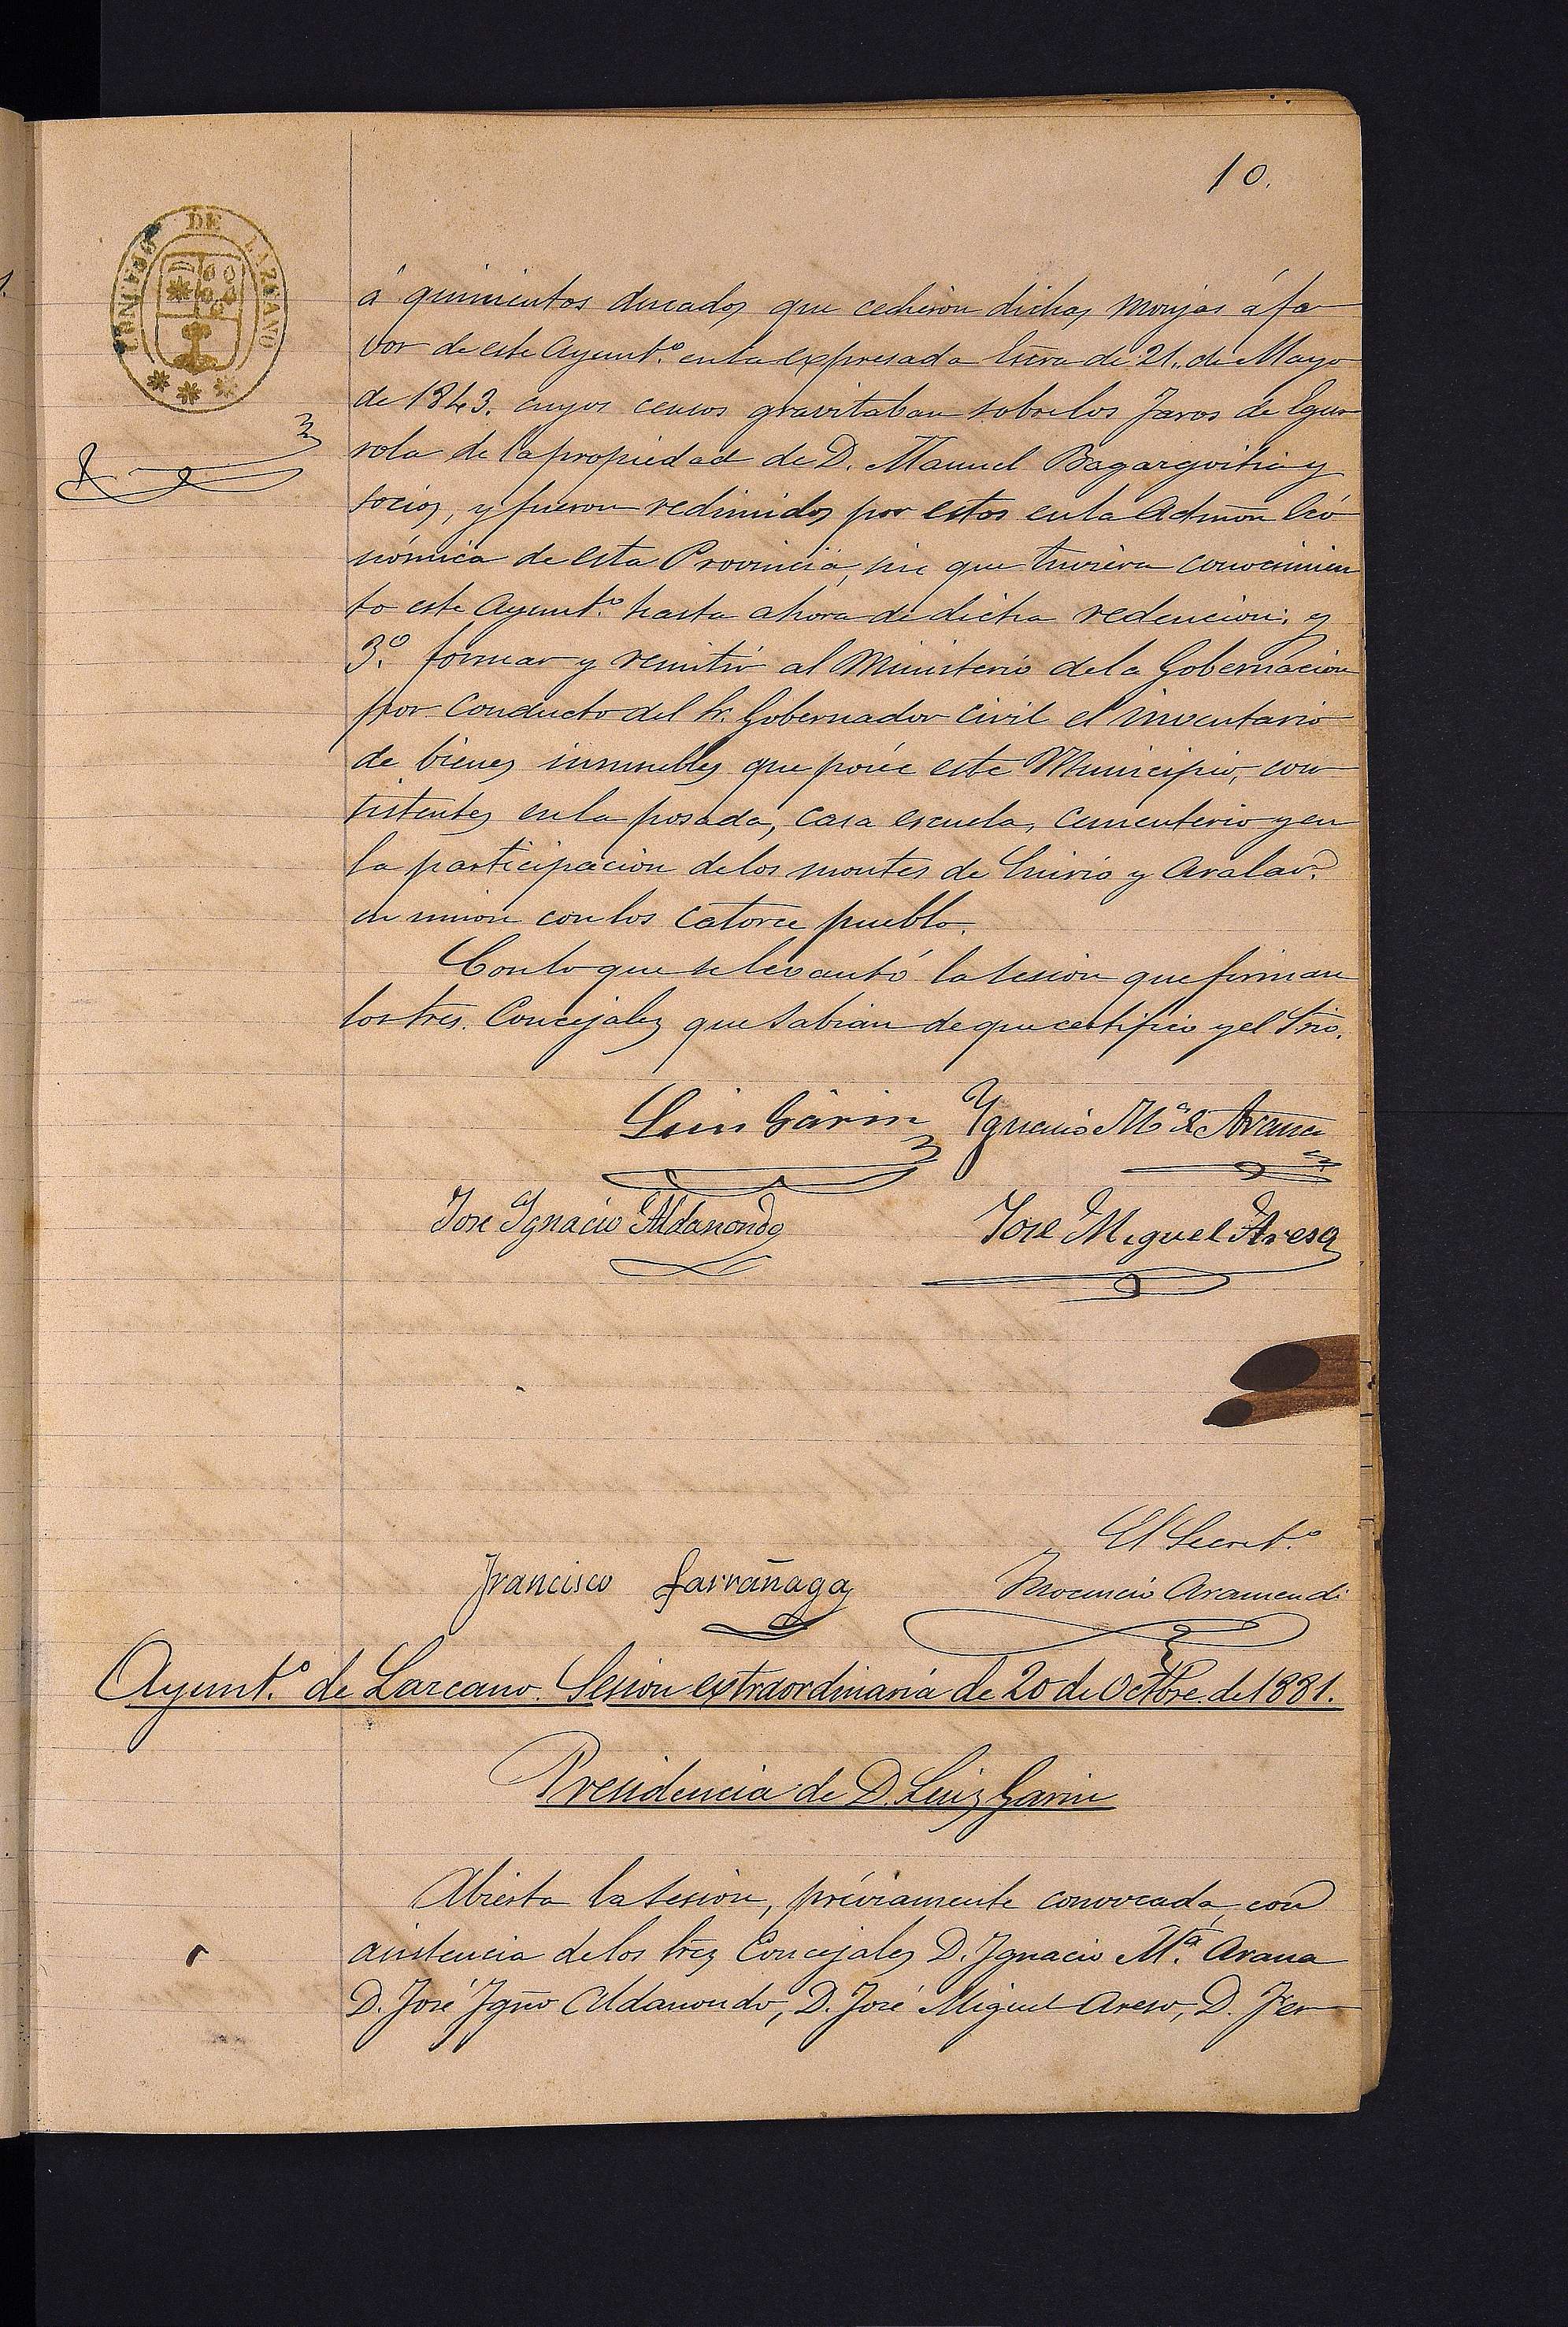 10.
CONCEJO DE LAZCANO
á quinientos ducados que cedieron dichas monjas á fa
vor de este Ayunt.º en la expresada Escra de 21. de Mayo
de 1843. cuyos censos gravitaban sobre los Jaros de Egur
rola de la propiedad de D. Manuel Bagargoitia y
socios, y fueron redimidos por estos en la Admon Eco
nómica de esta Provincia, sin que tuviera conocimien
to este Ayunt.º hasta ahora de dicha redencion; y
3.º formar y remitir al Ministerio de la Gobernacion
por conducto del Sr. Gobernador civil el inventario
de bienes inmuebles que posée este Municipio, con
sistentes en la posada, casa escuela, cementerio y en
la participacion de los montes de Enirio y Aralar.
en union con los catorce pueblo.
Con lo que se levantó la sesion que firman
los Sres. Concejales que sabian de que certifico yo el Srio.
Luis Garin Ygnacio M.ª de Arana
José Ygnacio Aldanondo José Miguel Areso
El Secret.º
Francisco Larrañaga Inocencio Aramendi
Ayunt.º de Lazcano. Sesion extraordinaria de 20 de Octbre. de 1881.
Presidencia de D. Luis Garin
Abierta la sesion, préviamente convocada, con
asistencia de los Sres Concejales D. Ignacio M.ª Arana
D. José Igno Aldanondo, D. José Miguel Areso, D. Fer